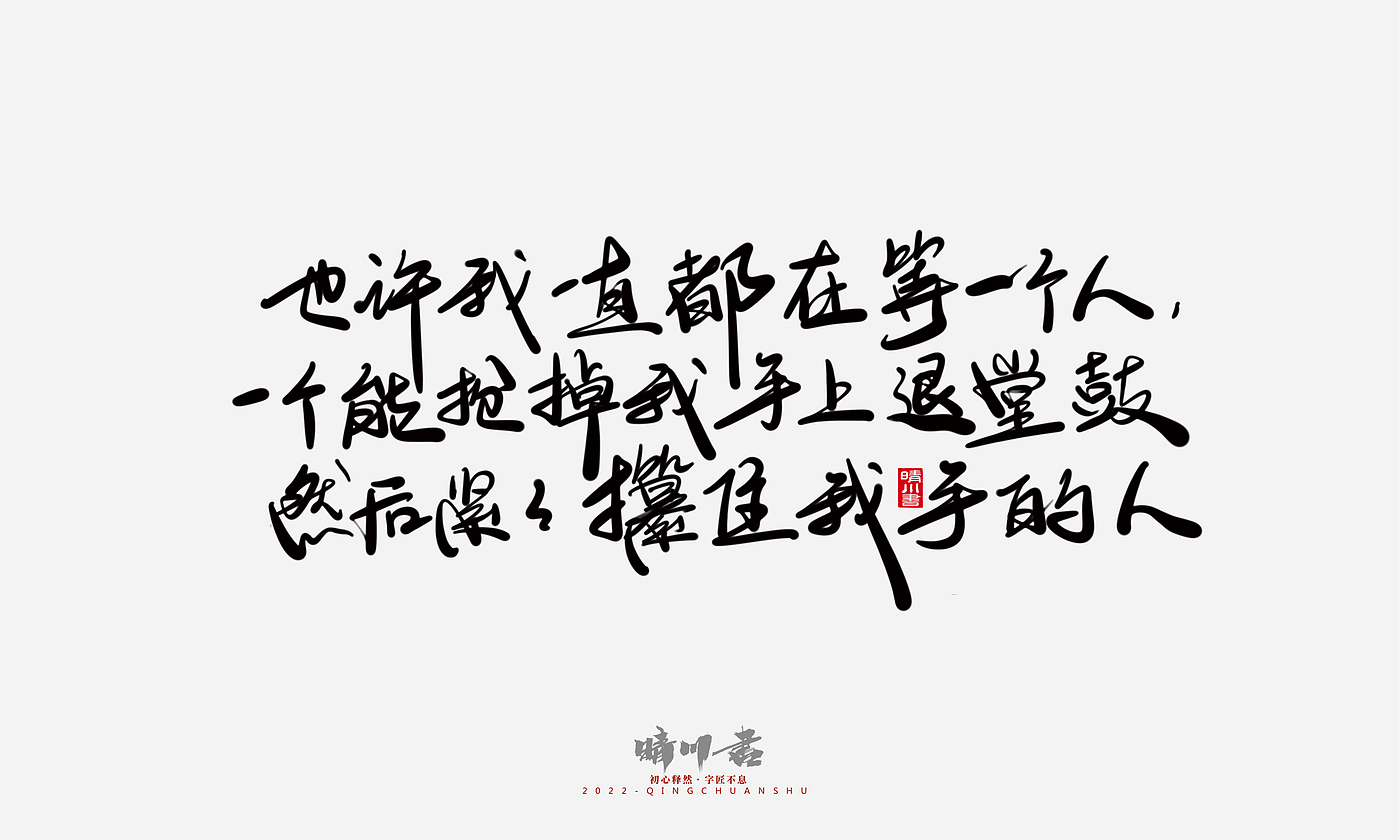 也许我一直都在等一个人，
一个能抢掉我手上退堂鼓
然后深々攥住我手的人
晴川書
晴川書
初心释然·字匠不息
2022-QINGCHUANSHU